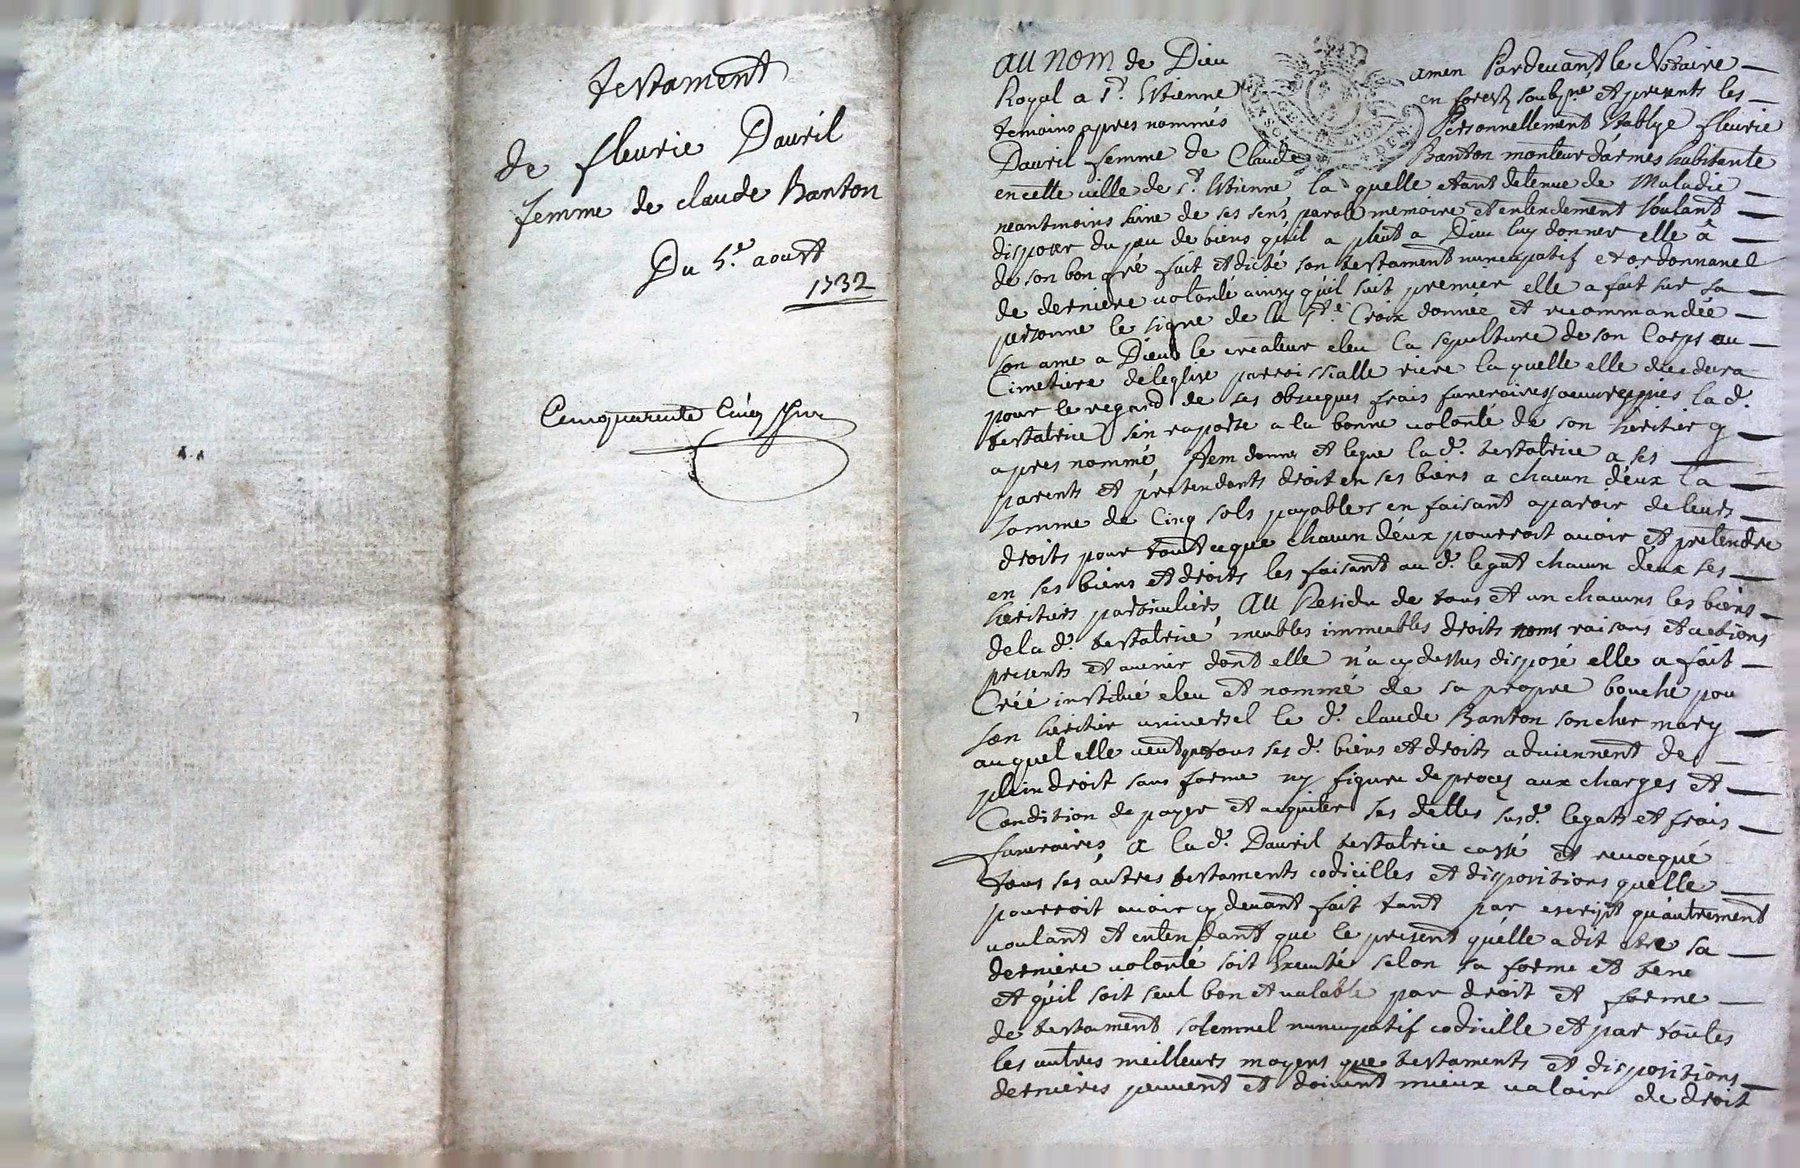 Testament
de fleurie Dauril
femme de claude Banton
Du 5.e aoust
1732
AU NOM de Dieu amen Pardevant le Notaire
Royal a St. Etienne en forest soubsne. et presents les
temoins apres nommés Personnellement Establye fleurie
Dauril femme de Claude Banton monteur d'armes habitante
en cette ville de St. Etienne, la quelle etant detenue de Maladie
neantmoins saine de ses sens parole memoire et entendement voulant
disposer du peu de biens quil a pleut a Dieu luy donner elle â
de son bon gré fait et dicté son testament nuncupatif et ordonnance
de derniere volonté ainsy quil suit premier elle a fait sur sa
personne le signe de la Ste. Croix donnée et recommandée
son ame a Dieu le createur eleu la sepulture de son Corps au
Cimetiere de leglise parroissialle riere la quelle elle decedera
pour le regard de ses obseques frais funeraires oeuvres pies la d.
testatrice s'en raporte a la bonne volonté de son heritier
apres nommé, Item donne et legue la d. testatrice a ses
parents et pretendants droit en ses biens a chacun d'eux la
somme de Cinq sols payables en faisant aparoir de leurs
droits pour tout ce que chacun d'eux pourroit avoir et pretendre
en ses biens et droits les faisant au d. legat chacun d'eux ses
heritiers particuliers, AU Residu de tous et un chacuns les biens
de la d. testatrice, meubles immeubles droits noms raisons et actions
presents et avenir dont elle n'a cy dessus disposé elle a fait
Créé institué eleu et nommé de sa propre bouche pou
son heritier universel le d. claude Banton son cher mary
auquel elle veut que tous ses d. biens et droits adviennent de
plein droit sans forme ny figure de proces aux charges et
Condition de payer et acquiter ses dettes susd. legats et frais
funeraires, A la d. Dauril testatrice cassé et revocqué
tous ses autres testaments codicilles et dispositions quelle
pourroit avoir cy devant fait tant par escript qu'autrement
voulant et entendant que le present qu'elle a dit etre sa
derniere volonté soit Executé selon sa forme et tene
et quil soit seul bon et valable par droit et forme
de testament solemnel nuncupatif codicille et par toutes
les autres meilleurs moyens que testaments et dispositions
dernieres peuvent et doivent mieux valoir de droit